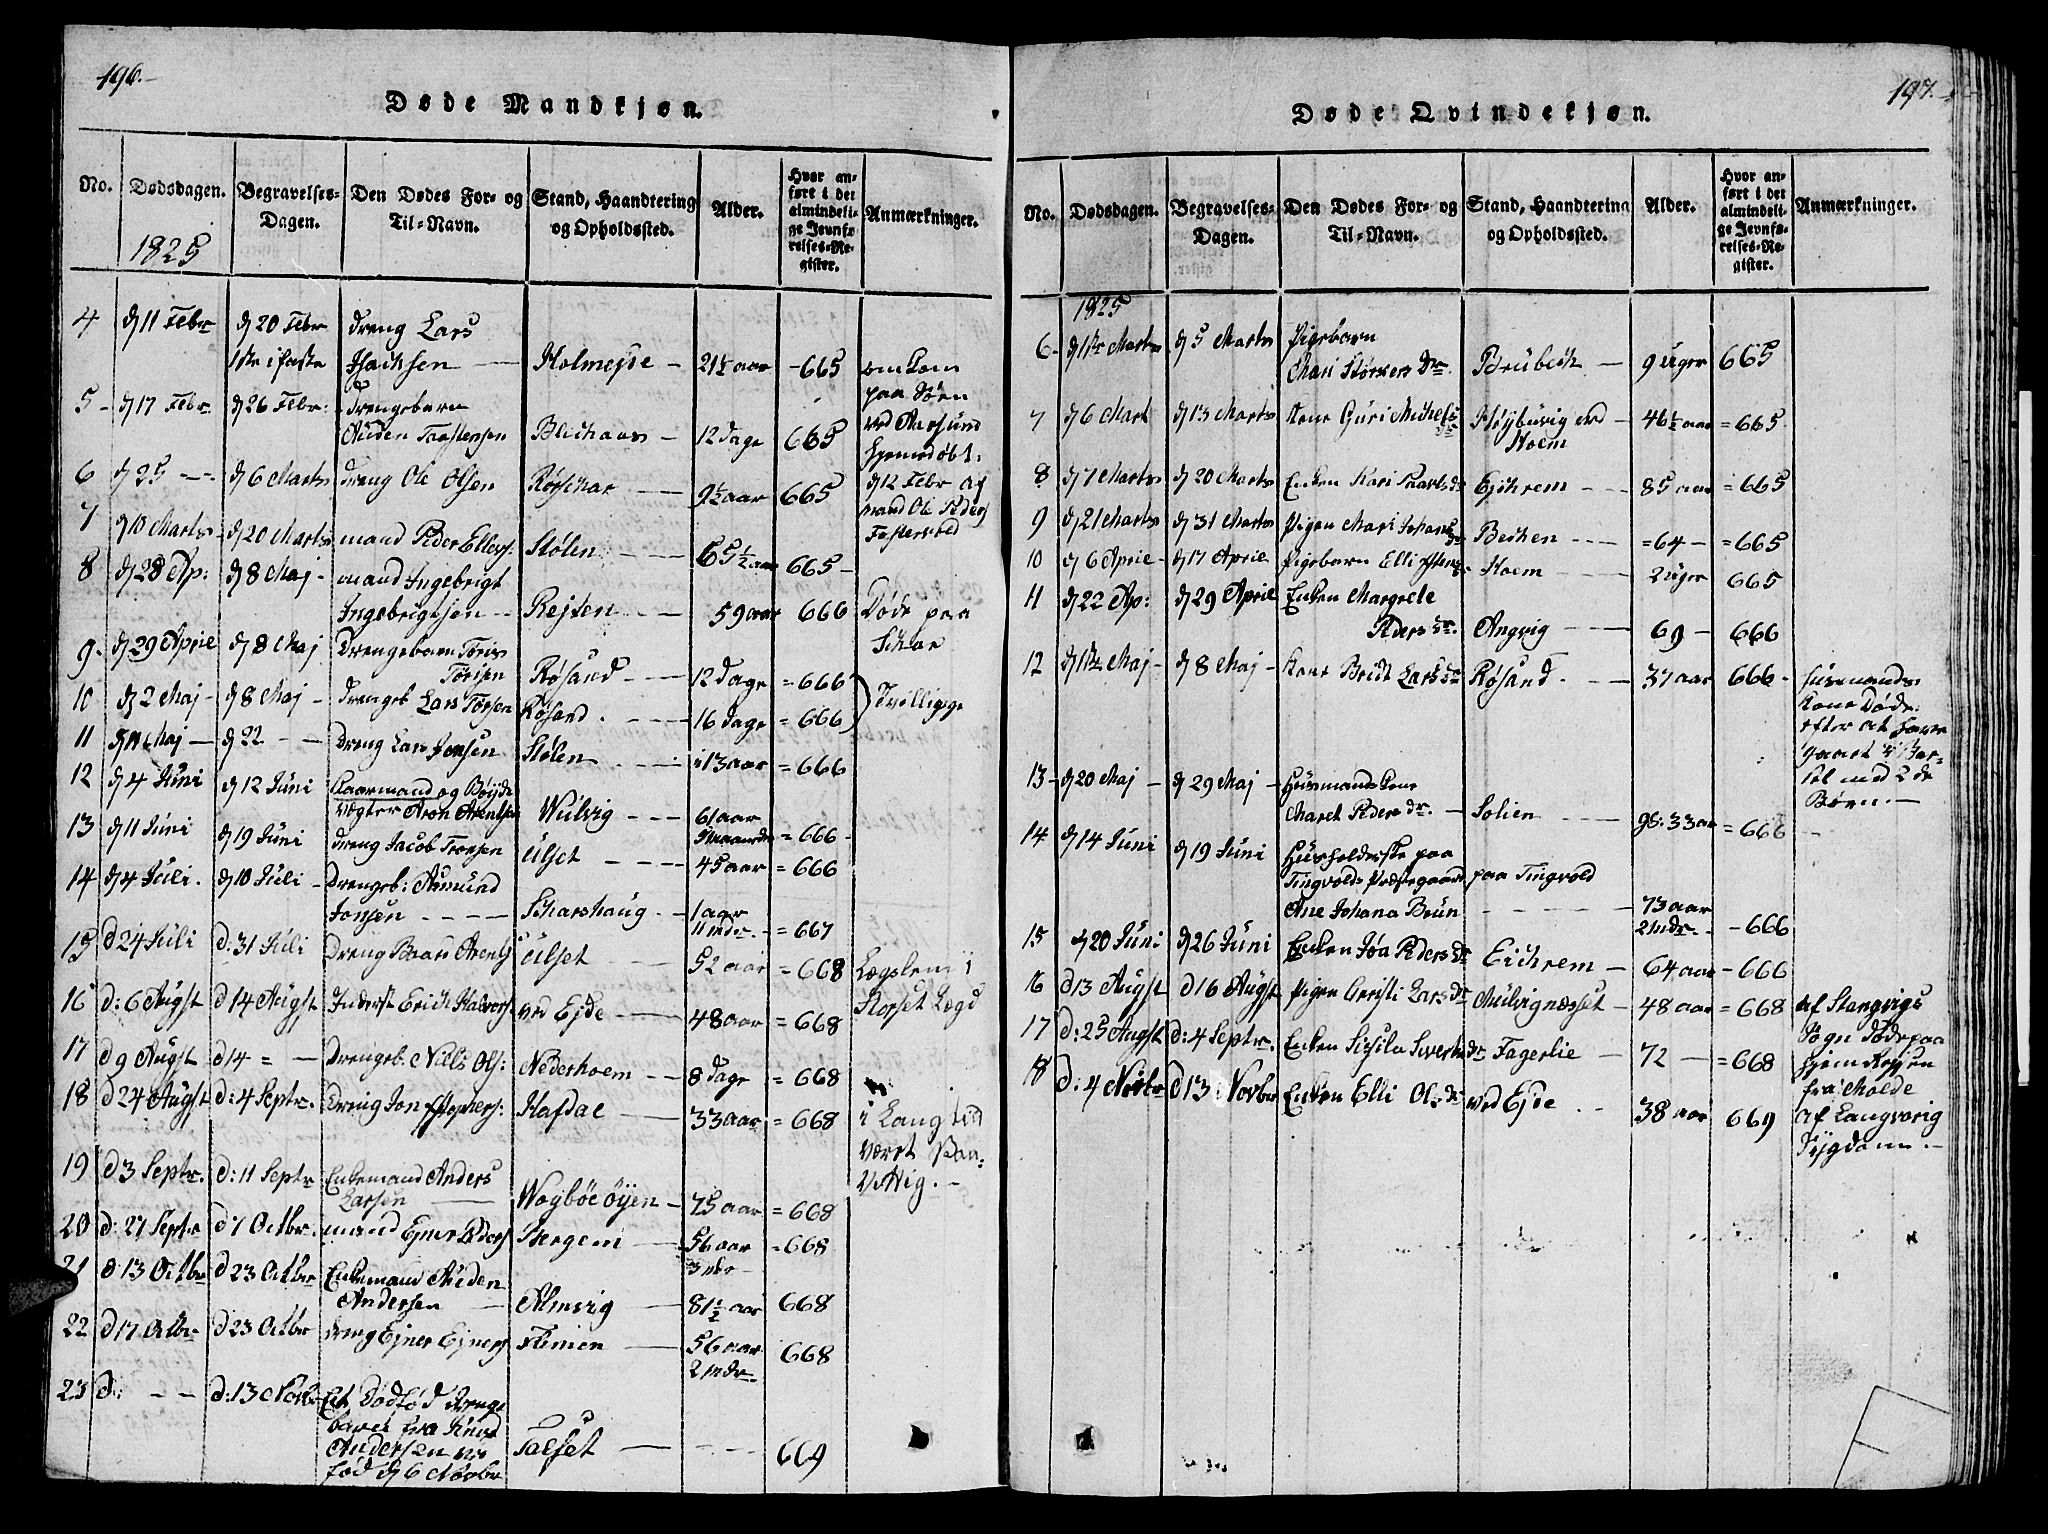 196.
Døde Mandkjøn.
No.
Dødsdagen.
Begravelses-
Dagen.
Den Dødes For- og
Til-Navn.
Stand, Haandtering
og Opholdssted.
Alder.
Hvor an-
ført i det
almindeli-
ge Jevnfø-
relses-Re-
gister.
Anmærkninger.
1825
4 d 11 Febr d 20 Febr Dreng Lars
1ste i faste Isachsen Holmejde 21½ aar 665 omkom
paa Søen
5 d 17 Febr d 26 Febr Drengebarn
ved Aarsund
Auden Taastensen 12 dage 665 hjemedøbt
6 d 25 d 6 Marts dreng Ole Olsen Rørschar 9½ aar 665 d 12 Febr af
mand Ole Peders
7 d 10 Marts d 20 Marts mand Peder Ellevs: Stølen 65½ aar 665
8 d 28 Ap: d 8 Maj mand Ingebrigt
Ingebrigtsen Rejten 59 aar 666 Døde paa
Schar
9 d 29 Aprie d 8 Maj Drengebarn Tøris
Tørisen Røsand 12 Dage 666
10 d 2 Maj d 8 Maj drengeb Lars Tørsen Røsand 16 dage 666 Tvillinge
11 d 11 Maj d 22 dreng Lars Jensen Stølen 13 aar 666
12 d 4 Juni d 12 Juni og Bøjde
vægter Aron Arentsen Wulvig 61 aar
666
13 d 11 Juni d 19 Juni dreng Jacob Ulset 45 aar 666
14 d 4 Juli d 10 Juli Drengeb: Asmund
Jonsen Scharshaug 1 aar
11 mdr 667
15 d 24 Juli d: 31 Juli Dreng Baars Arents Ulset 52 aar 668 Lægslem i
16 d: 6 Augst d 14 Augst Inderste Erich Halvors: ved Ejde 48 aar 668 Storset Lægd
17 d 9 Augst d 14 Drengeb: Niels Ols: Nederhoem 8 dage 668
18 d 24 Augst d: 4 Septr. Dreng Jon Hafdal 33 aar 668 i Lang tid
været Van-
vittig.
19 d 3 Septr. d: 11 Septr Enkemand Anders
Larsen Wogbøe Øyen 75 aar 668
20 d: 27 Septr d 7 Octbr. mand Ejner Peders Bergem 56 aar 668
3 mdr
21 d: 13 Octbr d 23 Octbr Enkemand Auden
Andersen Almvig 81½ aar 668
22 d 17 Octbr d 23 Octbr dreng Ejner Ejners Flemen 56 aar 668
2 mdr
23 d: d: 13 Novbr Et Dødfød drenge
barn fra Knud
Andersen Talset 669
fød d 6 Novbr
197.
Døde Qvindekjøn.
No.
Dødsdagen.
Begravelses-
Dagen.
Den Dødes For- og
Til-Navn.
Stand, Haandtering
og Opholdssted.
Alder.
Hvor an-
ført i det
almindeli-
ge Jevnfø-
relses-Re-
gister.
Anmærkninger.
1825
6 d 1ste Marts d 5 Marts Pigebarn
Mari Størkers Dr. Brubech 9 Uger 665
7 d 6 Mart d 13 Marts Kone Guri Michels Dr Høybuvig ved 46½ aar 665
Hoem
8 d 7 Marts d 20 Marts Enken Kari Paavls Dr Ejchrem 85 aar 665
9 d 21 Marts d 31 Marts Pigen Mari Johans Dr Bechen 64 665
10 d 6 Aprie d 17 Aprie Pigebarn Elli Hoem 2 Uger 665
11 d 22 Ap: d 29 Aprie Enken Margrete
Peders Dr. Angvig 69 666
12 d 1ste Maj d 8 Maj Kone Bridt Lars Dr Røsand 37 aar 666 husmands
Kone Døde
efter at have
gaaet i Bar-
sel med 2de
Børn.
13 d 20 Maj d 29 Maj Husmands Kone
Maret Peders Dr. Solien 33 aar 666
14 d 14 Juni d 19 Juni Husholderske paa
Tingvolds Præstegaard paa Tingvold
Ane Johana Brun 73 aar
2 Mdr. 666
15 d 20 Juni d 26 Juni Enken Peders Dr Eichrem 64 aar 666
16 d 13 Augst d 16 Augst Pigen Cristi Lars Dr Mulvignæsset 48 aar 668 af Stangvigs
Sogn Døde paa
17 d: 25 Augst d: 4 Septr. Enken Sissila Siverts Dr Fagerlie 72 668 hjem Rejsen
fra Molde
18 d: 4 Novbr d 13 Novbr Enken Elli Ols Dr ved Ejde 38 aar 669 af Langvarig
Sygdom.